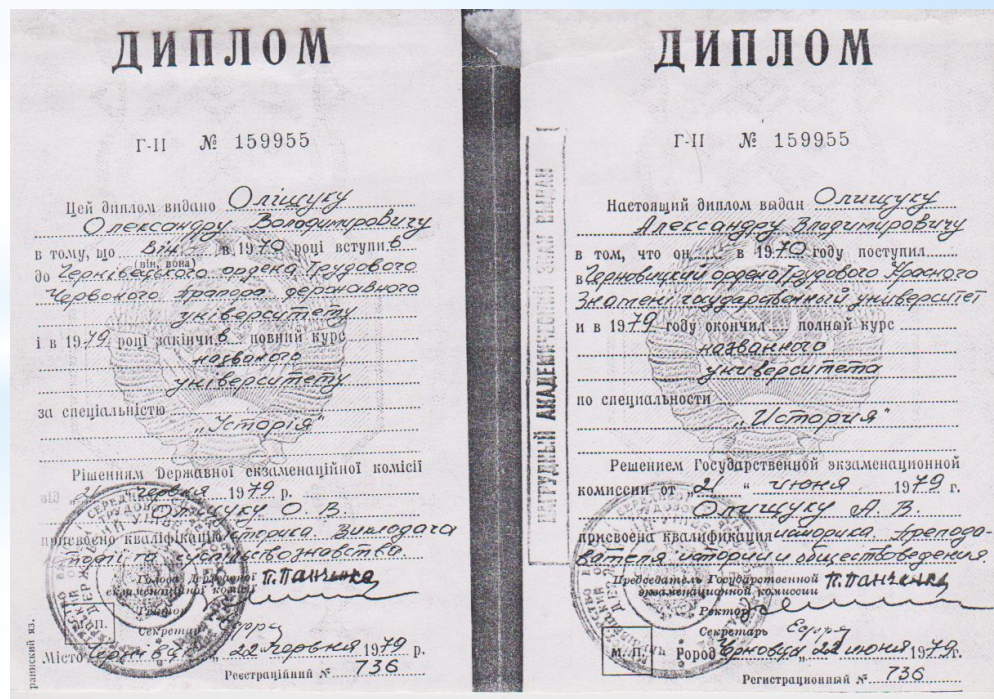 ДИПЛОМ
Г-II № 159955
Цей диплом видано Оліщуку
Олександру Володимировичу
в тому, що він в 1970 році вступив
(він, вона)
до Чернівецького ордена Трудового
Червоного Прапора державного
університету
і в 1979 році закінчив повний курс
названого
університету
за спеціальністю
„Історія"
Рішенням Державної екзаменаційної комісії
від „21" червня 1979 р.
Оліщуку О. В.
присвоєно кваліфікацію історика. Викладача
історії та суспільствознавства
Голова Державної П. Панченко
екзаменаційної комісії
Ректор
Секретар
М. П.
Місто Чернівці „22 червня 1979 р.
Реєстраційний № 736
ДИПЛОМ
Г-II № 159955
Настоящий диплом выдан Олищуку
Александру Владимировичу
в том, что он в 1970 году поступил
в Черновицкий ордена Трудового Красного
Знамени государственный университет
и в 1979 году окончил полный курс
названного
университета
по специальности
„История"
Решением Государственной экзаменационной
комиссии от „21" июня 1979 г.
Олищуку А. В.
присвоена квалификация историка. Преподавателя истории и обществоведения.
Председатель Государственной П. Панченко
экзаменационной комиссии
Ректор
Секретарь
М. П.
Город Черновцы „22 июня 1979 г.
Регистрационный № 736
НАГРУДНЫЙ АКАДЕМИЧЕСКИЙ ЗНАК ВЫДАН